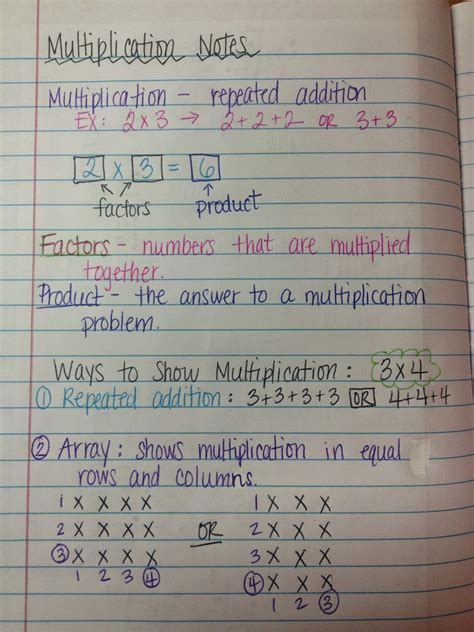 Multiplication Notes
Multiplication – repeated addition
EX: 2 x 3 → 2+2+2 OR 3+3
2 x 3 = 6
factors product
Factors – numbers that are multiplied
together.
Product – the answer to a multiplication
problem.
Ways to Show Multiplication: 3x4
① Repeated addition: 3+3+3+3 OR 4+4+4
② Array: shows multiplication in equal
rows and columns.
1 X X X X 1 X X X
2 X X X X OR 2 X X X
③ X X X X 3 X X X
1 2 3 ④ ④ X X X
1 2 ③